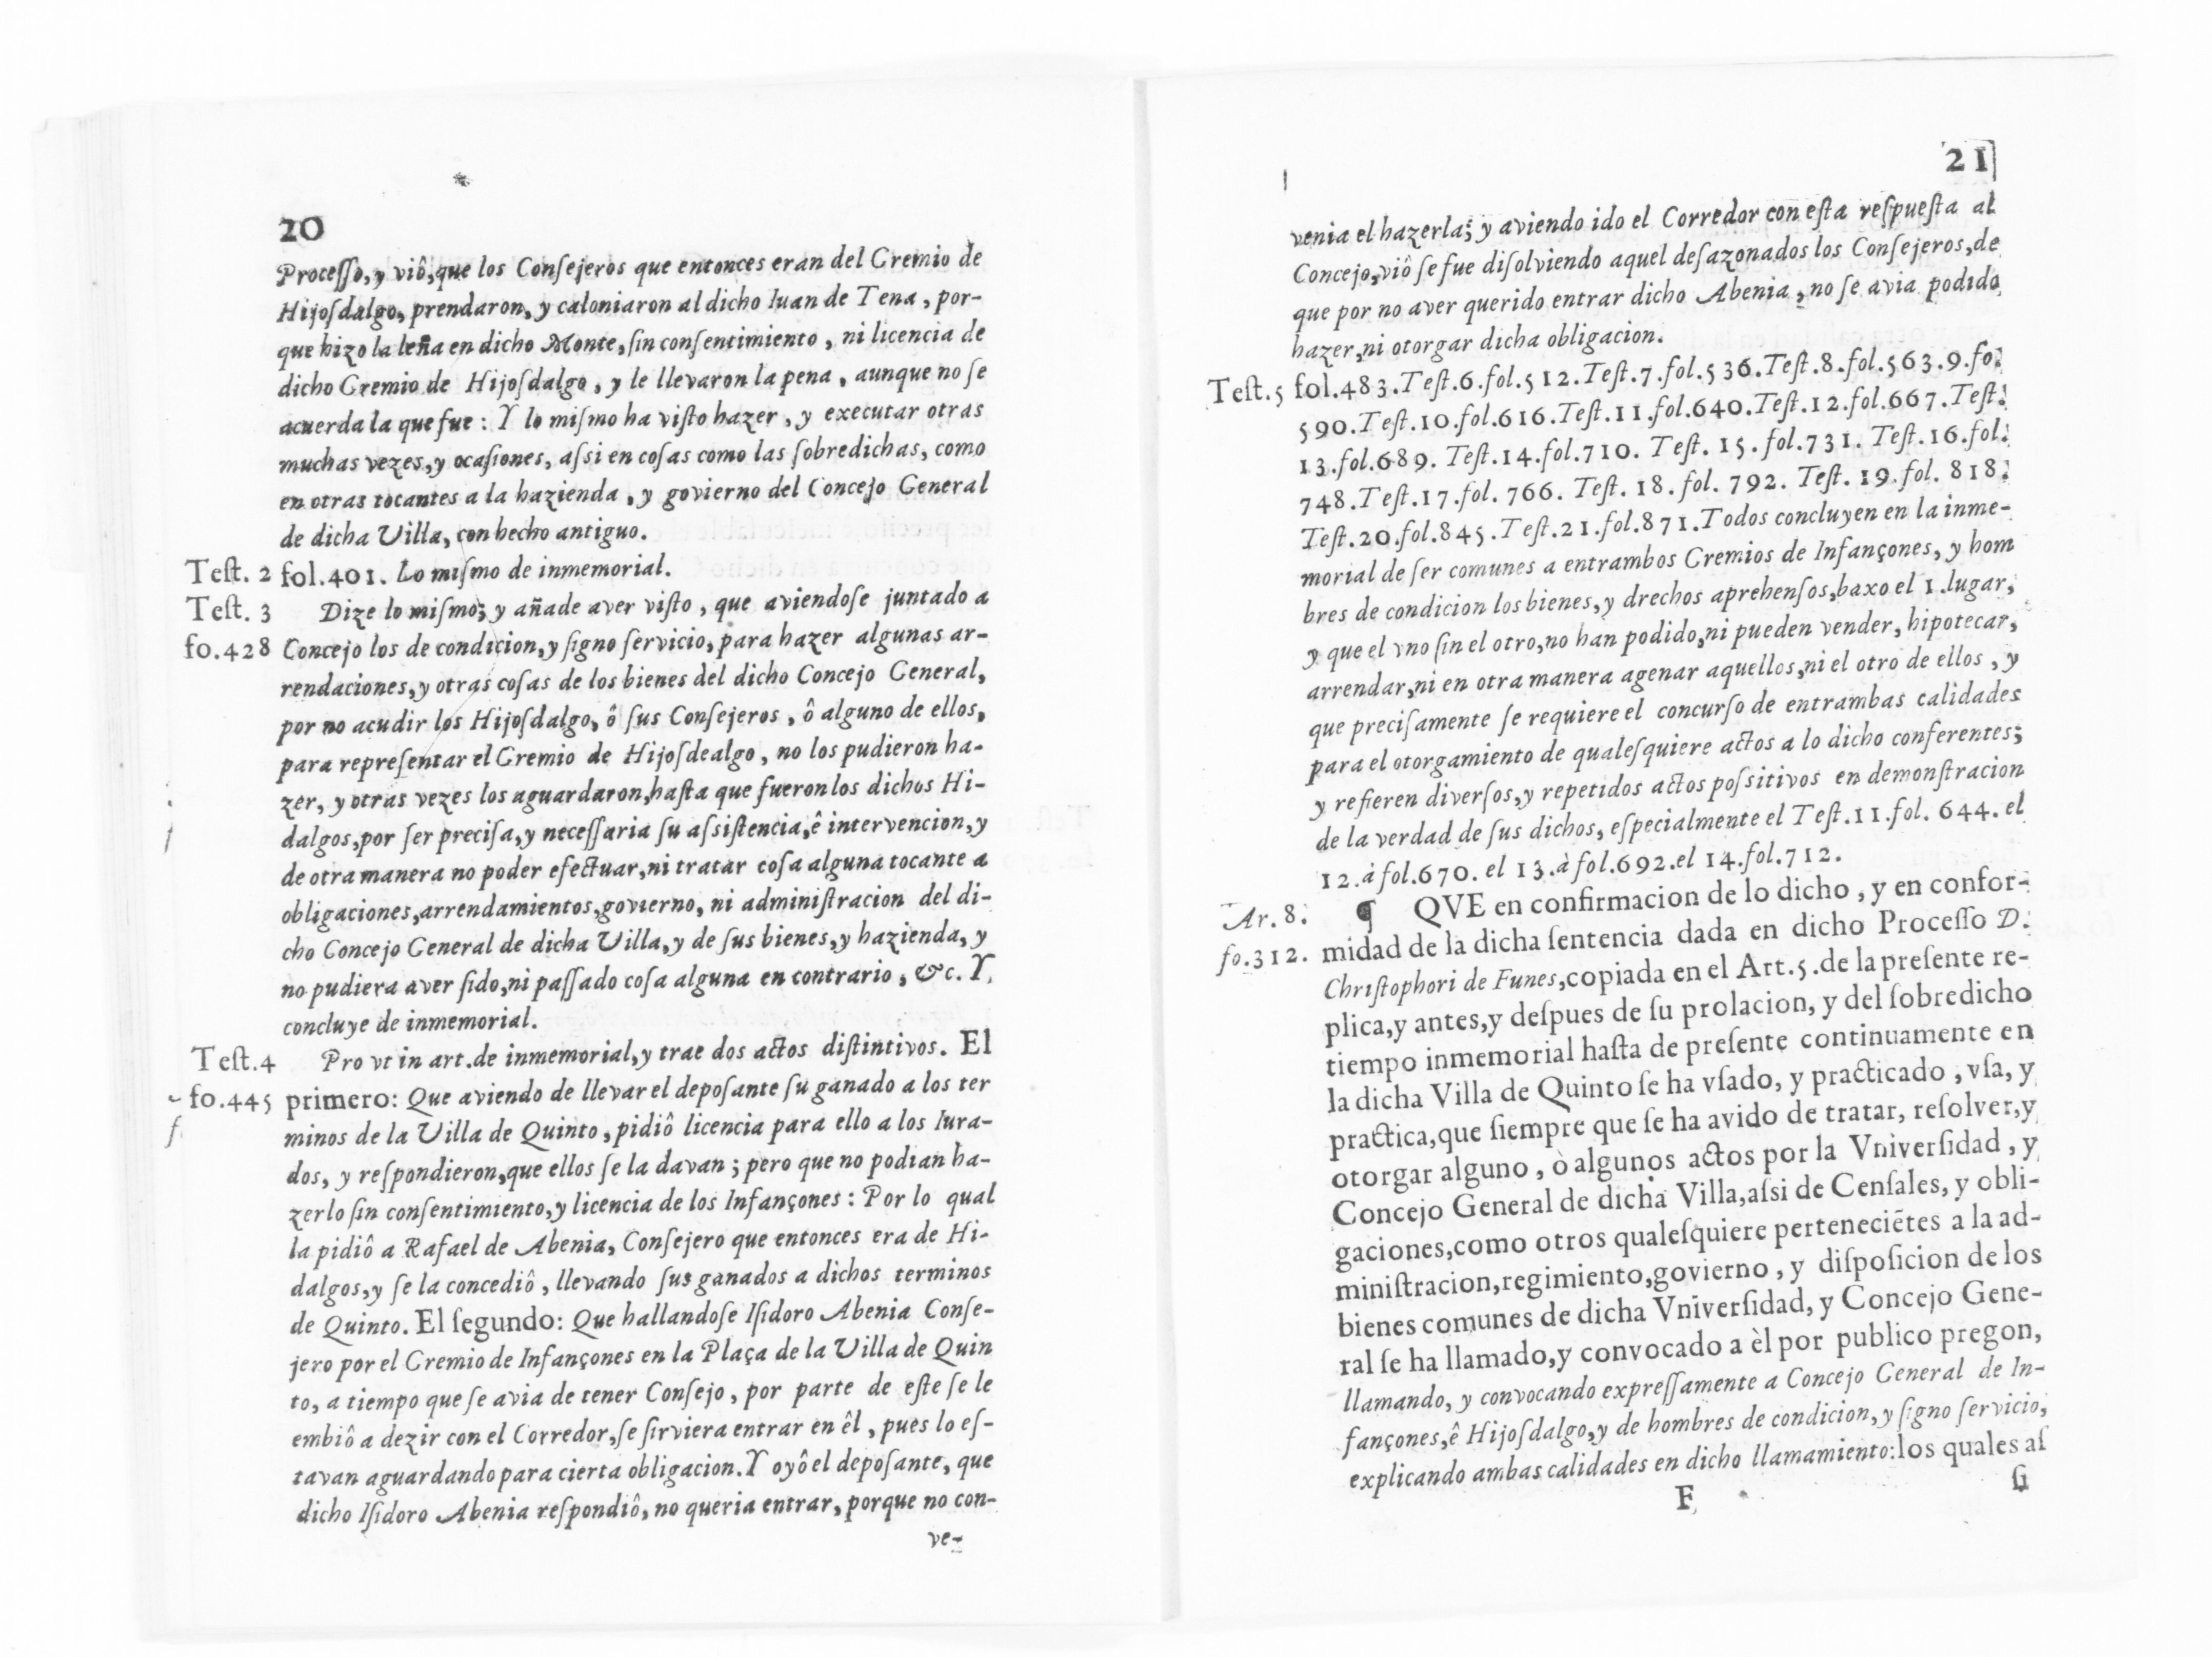 20
Proceſſo, y viô, que los Conſejeros que entonces eran del Gremio de
Hijoſdalgo, prendaron, y caloniaron al dicho Iuan de Tena, por-
que hizo la leña en dicho Monte, ſin conſentimiento, ni licencia de
dicho Gremio de Hijoſdalgo, y le llevaron la pena, aunque no ſe
acuerda la que fue: Y lo miſmo ha viſto hazer, y executar otras
muchas vezes, y ocaſiones, aſsi en coſas como las ſobredichas, como
en otras tocantes a la hazienda, y govierno del Concejo General
de dicha Villa, con hecho antiguo.
Teſt. 2 fol.401. Lo miſmo de inmemorial.
Teſt. 3 Dize lo miſmo; y añade aver viſto, que aviendoſe juntado a
fo.428 Concejo los de condicion, y ſigno ſervicio, para hazer algunas ar-
rendaciones, y otras coſas de los bienes del dicho Concejo General,
por no acudir los Hijoſdalgo, ô ſus Conſejeros, ô alguno de ellos,
para repreſentar el Gremio de Hijoſdealgo, no los pudieron ha-
zer, y otras vezes los aguardaron, haſta que fueron los dichos Hi-
dalgos, por ſer preciſa, y neceſſaria ſu aſsiſtencia, ê intervencion, y
de otra manera no poder efectuar, ni tratar coſa alguna tocante a
obligaciones, arrendamientos, govierno, ni adminiſtracion del di-
cho Concejo General de dicha Villa, y de ſus bienes, y hazienda, y
no pudiera aver ſido, ni paſſado coſa alguna en contrario, &c. Y
concluye de inmemorial.
Teſt.4 Pro vt in art. de inmemorial, y trae dos actos diſtintivos. El
fo.445 primero: Que aviendo de llevar el depoſante ſu ganado a los ter
minos de la Villa de Quinto, pidiô licencia para ello a los Iura-
dos, y reſpondieron, que ellos ſe la davan; pero que no podian ha-
zerlo ſin conſentimiento, y licencia de los Infançones: Por lo qual
la pidiô a Rafael de Abenia, Conſejero que entonces era de Hi-
dalgos, y ſe la concediô, llevando ſus ganados a dichos terminos
de Quinto. El ſegundo: Que hallandoſe Iſidoro Abenia Conſe-
jero por el Gremio de Infançones en la Plaça de la Villa de Quin
to, a tiempo que ſe avia de tener Conſejo, por parte de eſte ſe le
embiô a dezir con el Corredor, ſe ſirviera entrar en êl, pues lo eſ-
tavan aguardando para cierta obligacion. Y oyô el depoſante, que
dicho Iſidoro Abenia reſpondiô, no queria entrar, porque no con-
ve-
21
venia el hazerla; y aviendo ido el Corredor con eſta reſpueſta al
Concejo, viô ſe fue diſolviendo aquel deſazonados los Conſejeros, de
que por no aver querido entrar dicho Abenia, no ſe avia podido
hazer, ni otorgar dicha obligacion.
Teſt.5 fol.483. Teſt.6.fol.512. Teſt.7.fol.536. Teſt.8.fol.563.9.fo.
590. Teſt.10.fol.616. Teſt.11.fol.640. Teſt.12.fol.667. Teſt.
13.fol.689. Teſt.14.fol.710. Teſt. 15.fol.731. Teſt.16.fol.
748. Teſt.17.fol. 766. Teſt. 18.fol. 792. Teſt. 19.fol. 818.
Teſt.20.fol.845. Teſt.21.fol.871. Todos concluyen en la inme-
morial de ſer comunes a entrambos Gremios de Infançones, y hom
bres de condicion los bienes, y drechos aprehenſos, baxo el 1.lugar,
y que el vno ſin el otro, no han podido, ni pueden vender, hipotecar,
arrendar, ni en otra manera agenar aquellos, ni el otro de ellos, y
que preciſamente ſe requiere el concurſo de entrambas calidades
para el otorgamiento de qualeſquiere actos a lo dicho conferentes;
y refieren diverſos, y repetidos actos poſsitivos en demonſtracion
de la verdad de ſus dichos, eſpecialmente el Teſt.11.fol. 644. el
12.à fol.670. el 13.à fol.692. el 14.fol.712.
Ar. 8. ¶ QVE en confirmacion de lo dicho, y en confor-
fo.312. midad de la dicha ſentencia dada en dicho Proceſſo D.
Chriſtophori de Funes, copiada en el Art.5.de la preſente re-
plica, y antes, y deſpues de ſu prolacion, y del ſobredicho
tiempo inmemorial haſta de preſente continuamente en
la dicha Villa de Quinto ſe ha vſado, y practicado, vſa, y
practica, que ſiempre que ſe ha avido de tratar, reſolver, y
otorgar alguno, ò algunos actos por la Vniverſidad, y
Concejo General de dicha Villa, aſsi de Cenſales, y obli-
gaciones, como otros qualeſquiere perteneciẽtes a la ad-
miniſtracion, regimiento, govierno, y diſpoſicion de los
bienes comunes de dicha Vniverſidad, y Concejo Gene-
ral ſe ha llamado, y convocado a èl por publico pregon,
llamando, y convocando expreſſamente a Concejo General de In-
fançones, ê Hijoſdalgo, y de hombres de condicion, y ſigno ſervicio,
explicando ambas calidades en dicho llamamiento: los quales aſ
F ſi